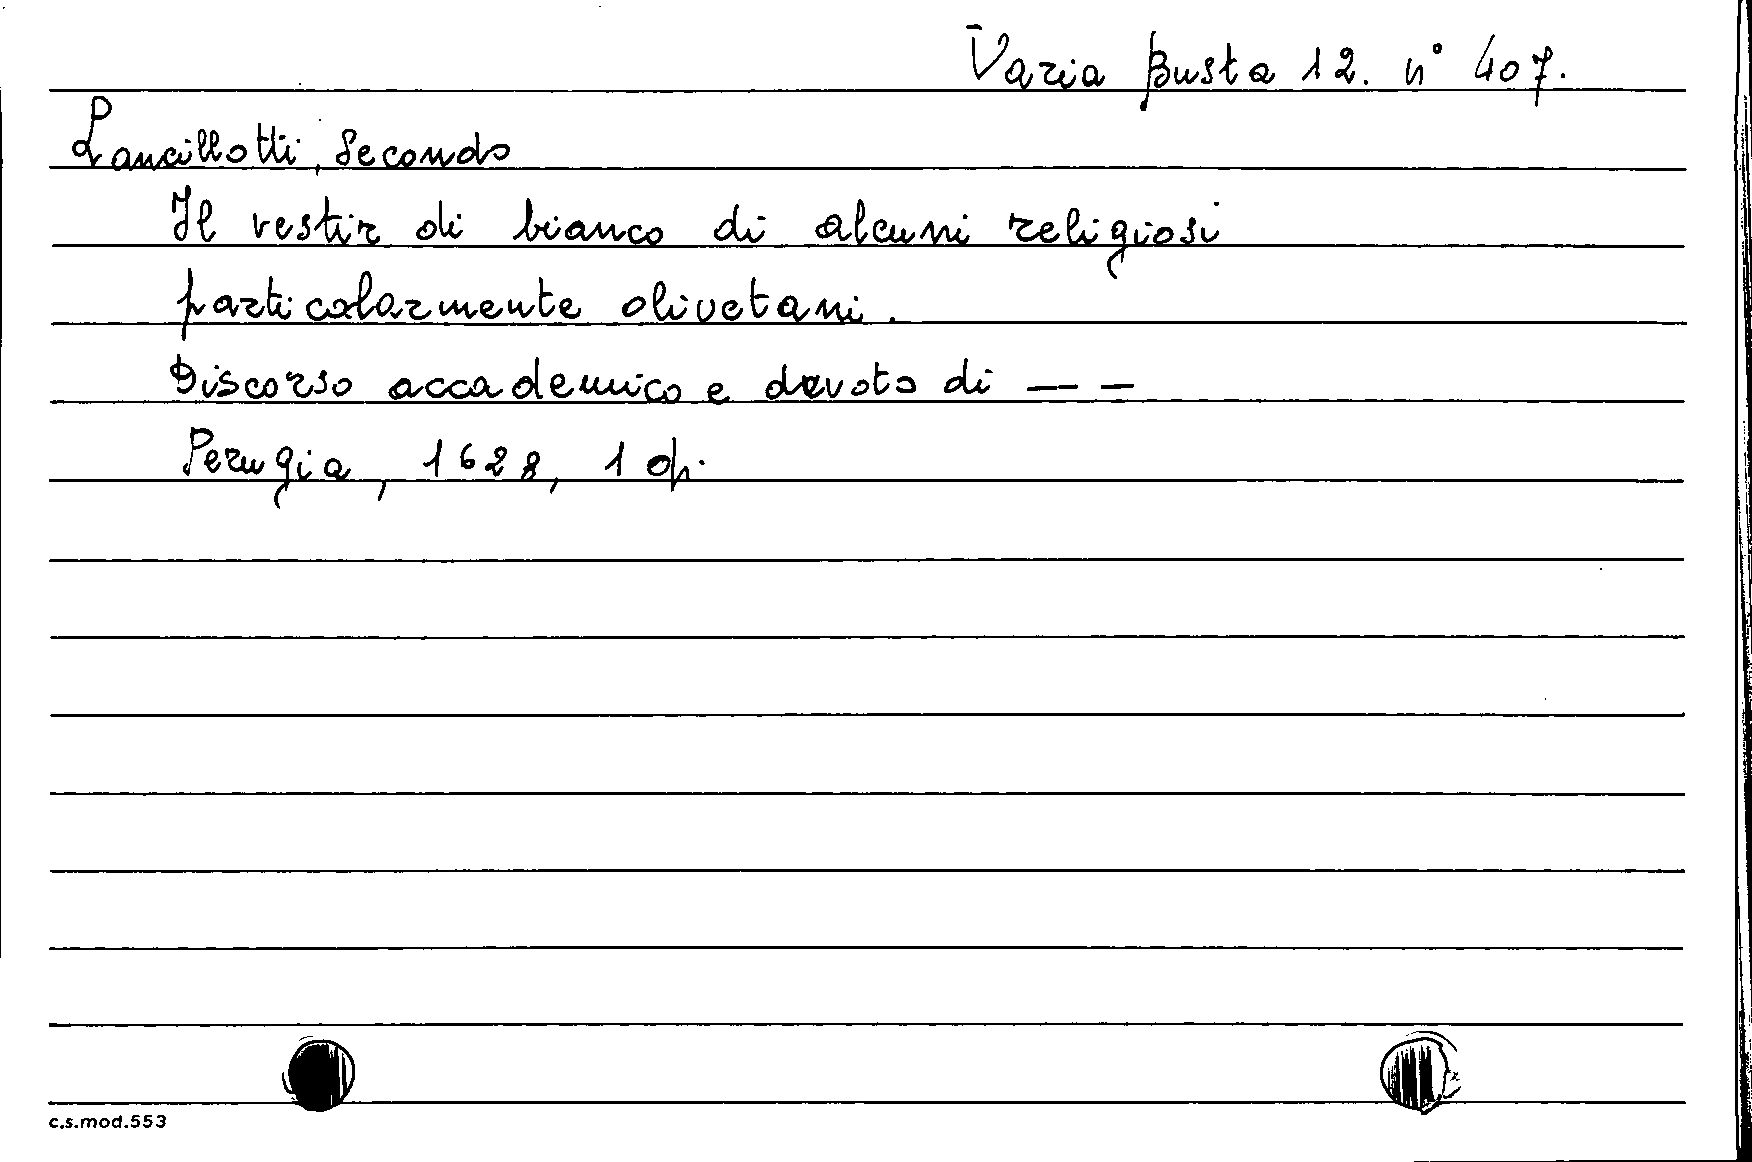 Varia Busta 12. n° 407.
Lancillotti, Secondo
Il vestir di bianco di alcuni religiosi
particolarmente olivetani.
Discorso accademico e devoto di — —
Perugia, 1628, 1 op.
c.s.mod.553